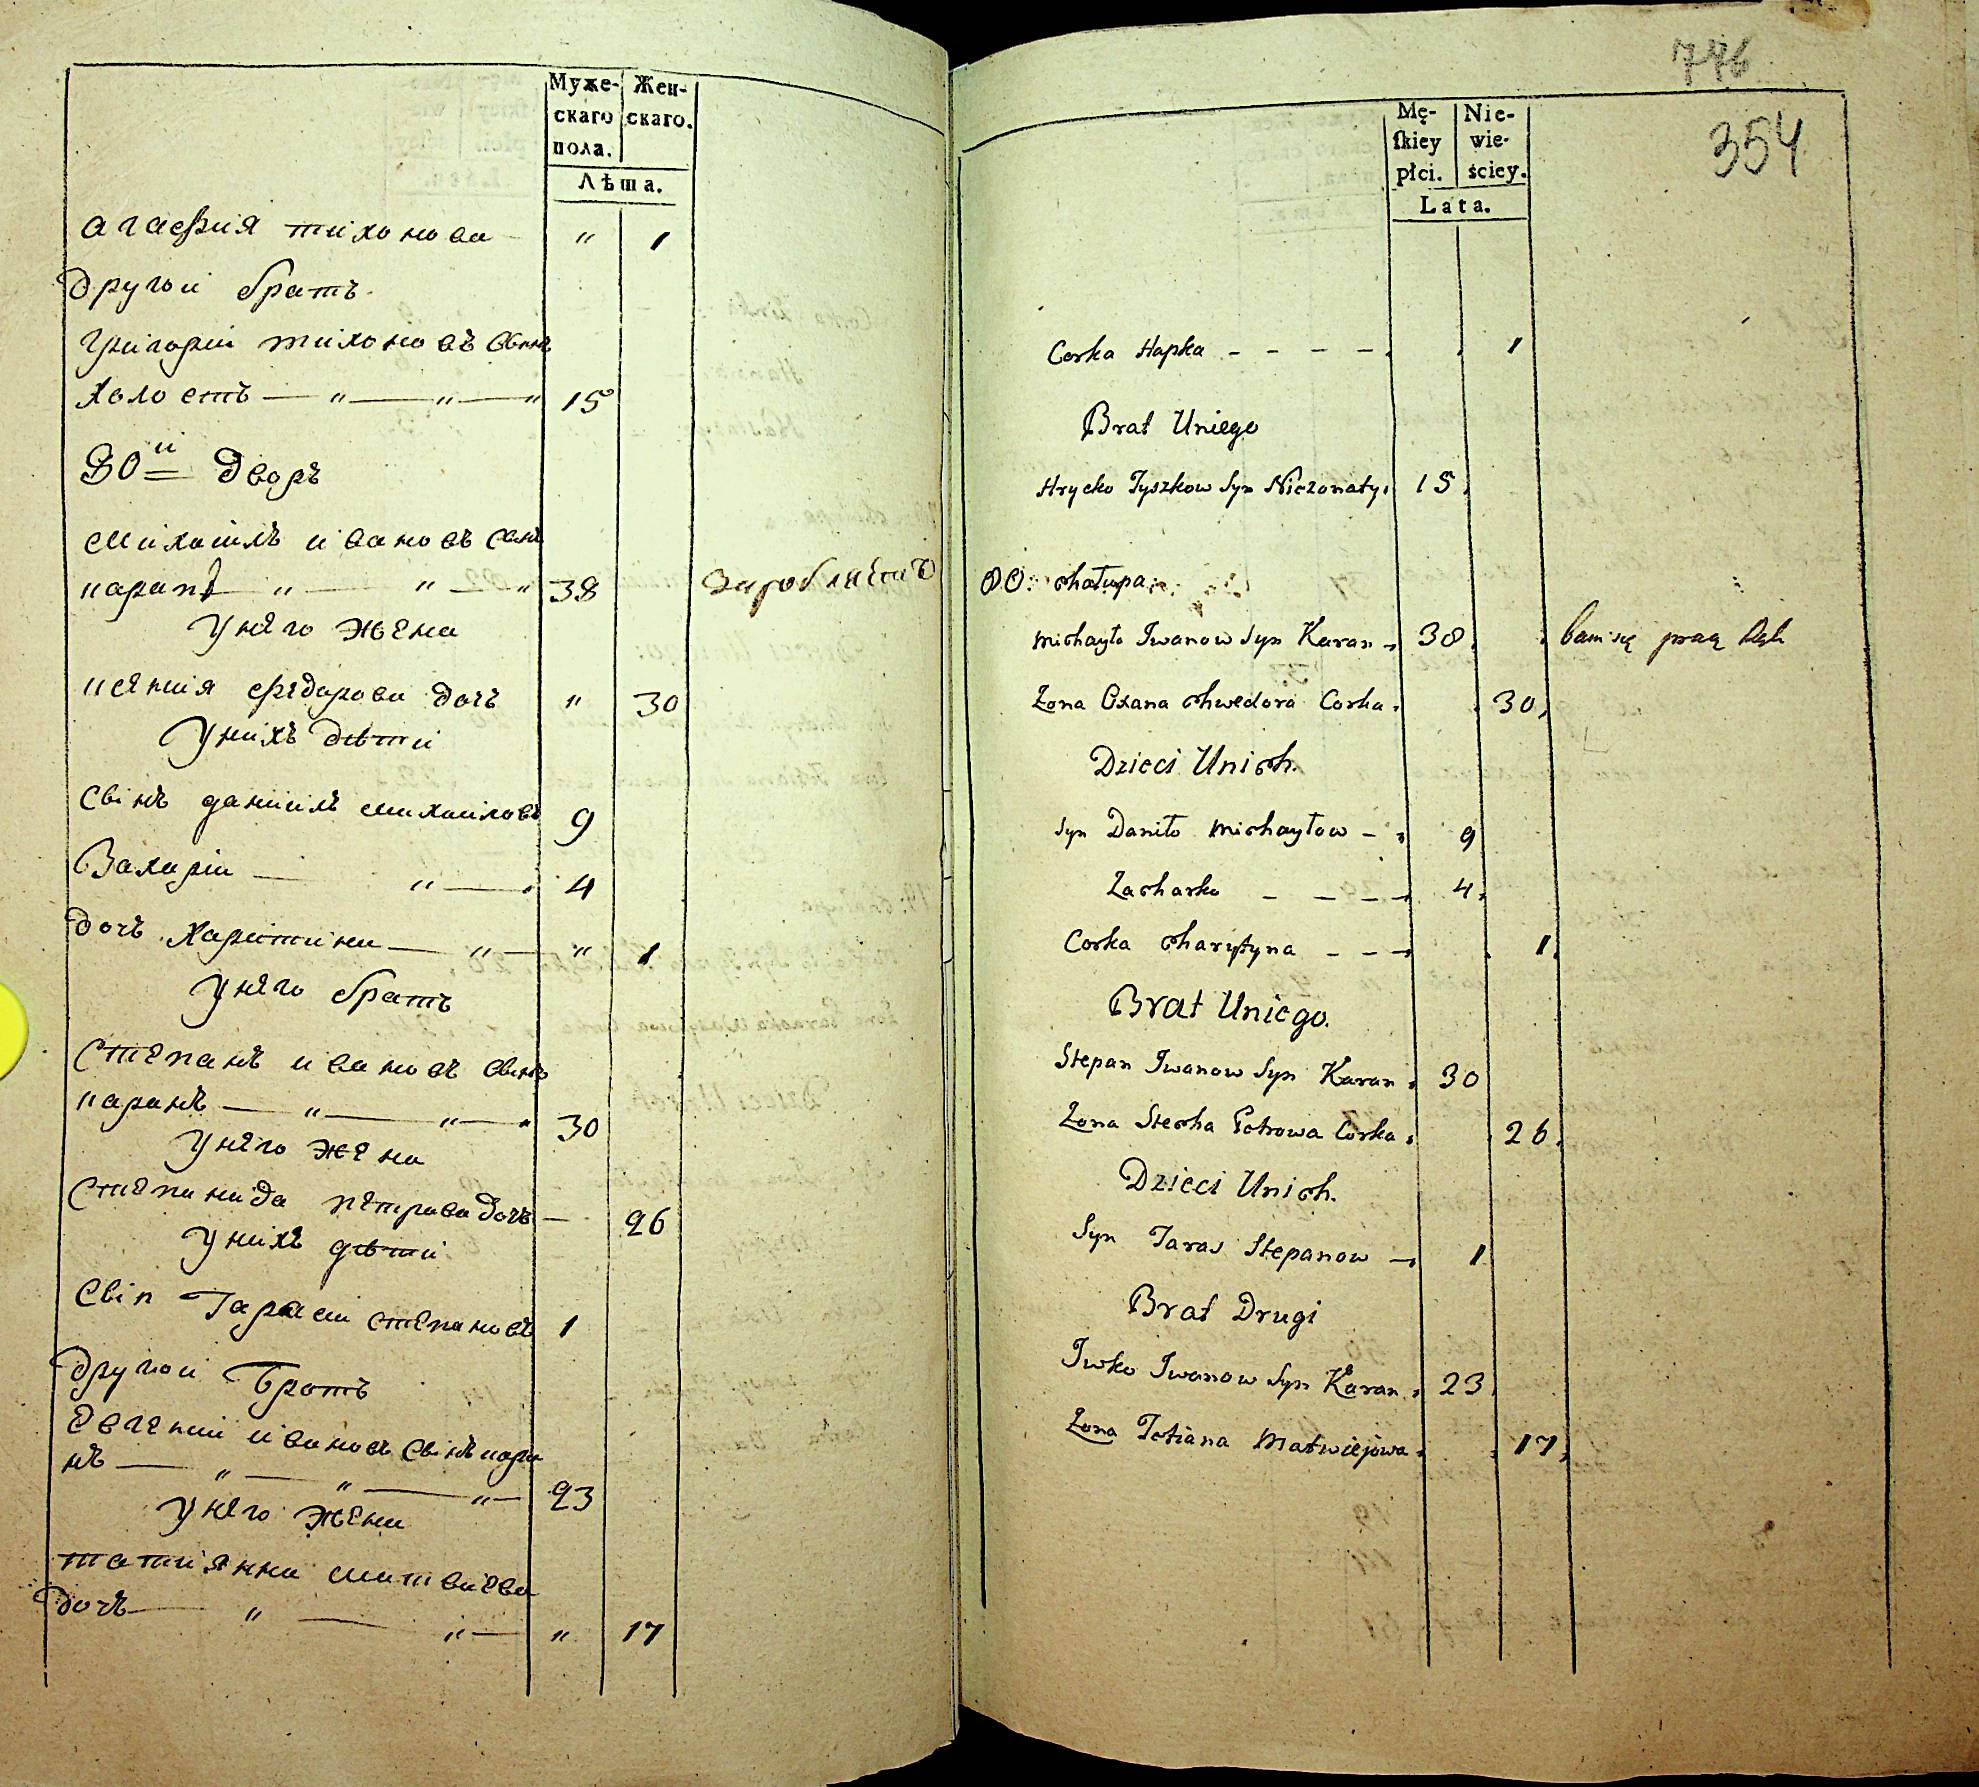 Муже-
скаго
пола.
Жен-
скаго.
Лѣта.
Агафия тихонова — " 1
другой братъ
Григорий тихоновъ свинъ
холостъ — " — " — " 15
80й дворъ
михаилъ ивановъ синъ
каранъ " — " — " 38
унего жена
ксения федорова дочъ " 30
унихъ дѣти
свінъ даниилъ михаиловъ 9
Захарій — " — 4
дочъ Харитина — " — " 1
унего братъ
Степанъ ивановъ свинъ
каранъ — " — " — 30
унего жена
степанида петрова дочъ — 26
унихъ дѣти
свін Тарасий степановъ 1
другой Братъ
Евгений ивановъ свінъ кара
нъ — " — " — " — 23
унего жена
татиянна матвиева
дочъ — " — " — " 17
746
354
Mę-
ſkiey
płci.
Nie-
wie-
ściey.
Lata.
Corka Hapka - - - - 1
Brat Uniego
Hrycko Tyszkow Syn Niezonaty 15
80: chałupa
michayło Iwanow Syn Karan 38
Zona Oxana chwedora Corka 30
Dzieci Unich.
Syn Daniło michayłow - 9
Zacharko - - - - 4
Corka charytyna - - - 1
Brat Uniego.
Stepan Iwanow Syn Karan 30
Zona Stecha Petrowa Corka 26
Dzieci Unich.
Syn Taras Stepanow - 1
Brat Drugi
Iwko Iwanow Syn Karan 23
Zona Tatiana Matwiejowa 17